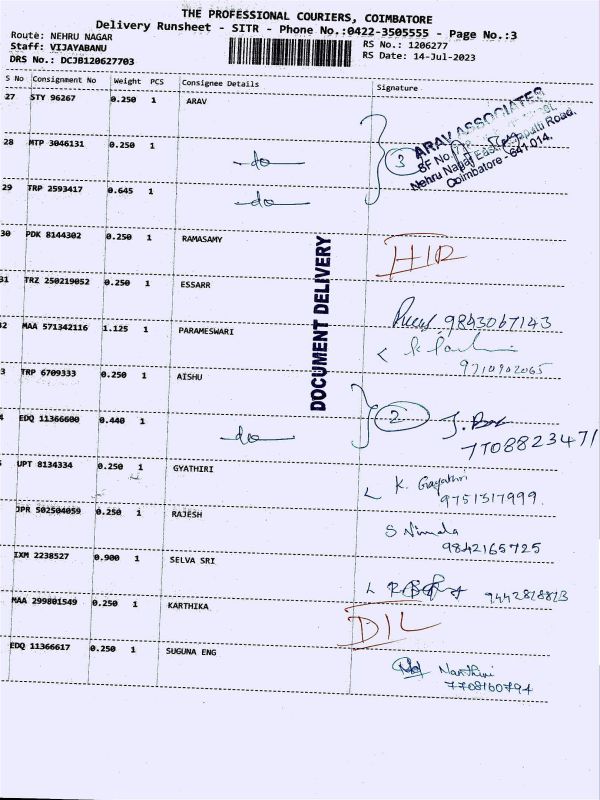 THE PROFESSIONAL COURIERS, COIMBATORE
Delivery Runsheet - SITR - Phone No.:0422-3505555 - Page No.:3
Route: NEHRU NAGAR
RS No.: 1206277
Staff: VIJAYABANU
RS Date: 14-Jul-2023
DRS No.: DCJB120627703
S No Consignment No Weight PCS Consignee Details Signature
27 STY 96267 0.250 1 ARAV
ARAV ASSOCIATES
SF No.
Nehru Nagar East,
Road,
Coimbatore - 641 014.
28 MTP 3046131 0.250 1 -do- 3
29 TRP 2593417 0.645 1 -do-
30 PDK 8144302 0.250 1 RAMASAMY
DOCUMENT DELIVERY
31 TRZ 250219052 0.250 1 ESSARR 9843067143
2 MAA 571342116 1.125 1 PARAMESWARI
9710902065
3 TRP 6709333 0.250 1 AISHU
EDQ 11366600 0.440 1 -do- 2
7708823471
UPT 8134334 0.250 1 GYATHIRI K. Gayathri
9751517999
JPR 502504059 0.250 1 RAJESH S Nirmala
9842165725
IXM 2238527 0.900 1 SELVA SRI 9442818813
MAA 299801549 0.250 1 KARTHIKA D/L
EDQ 11366617 0.250 1 SUGUNA ENG Nanthini
7708160794